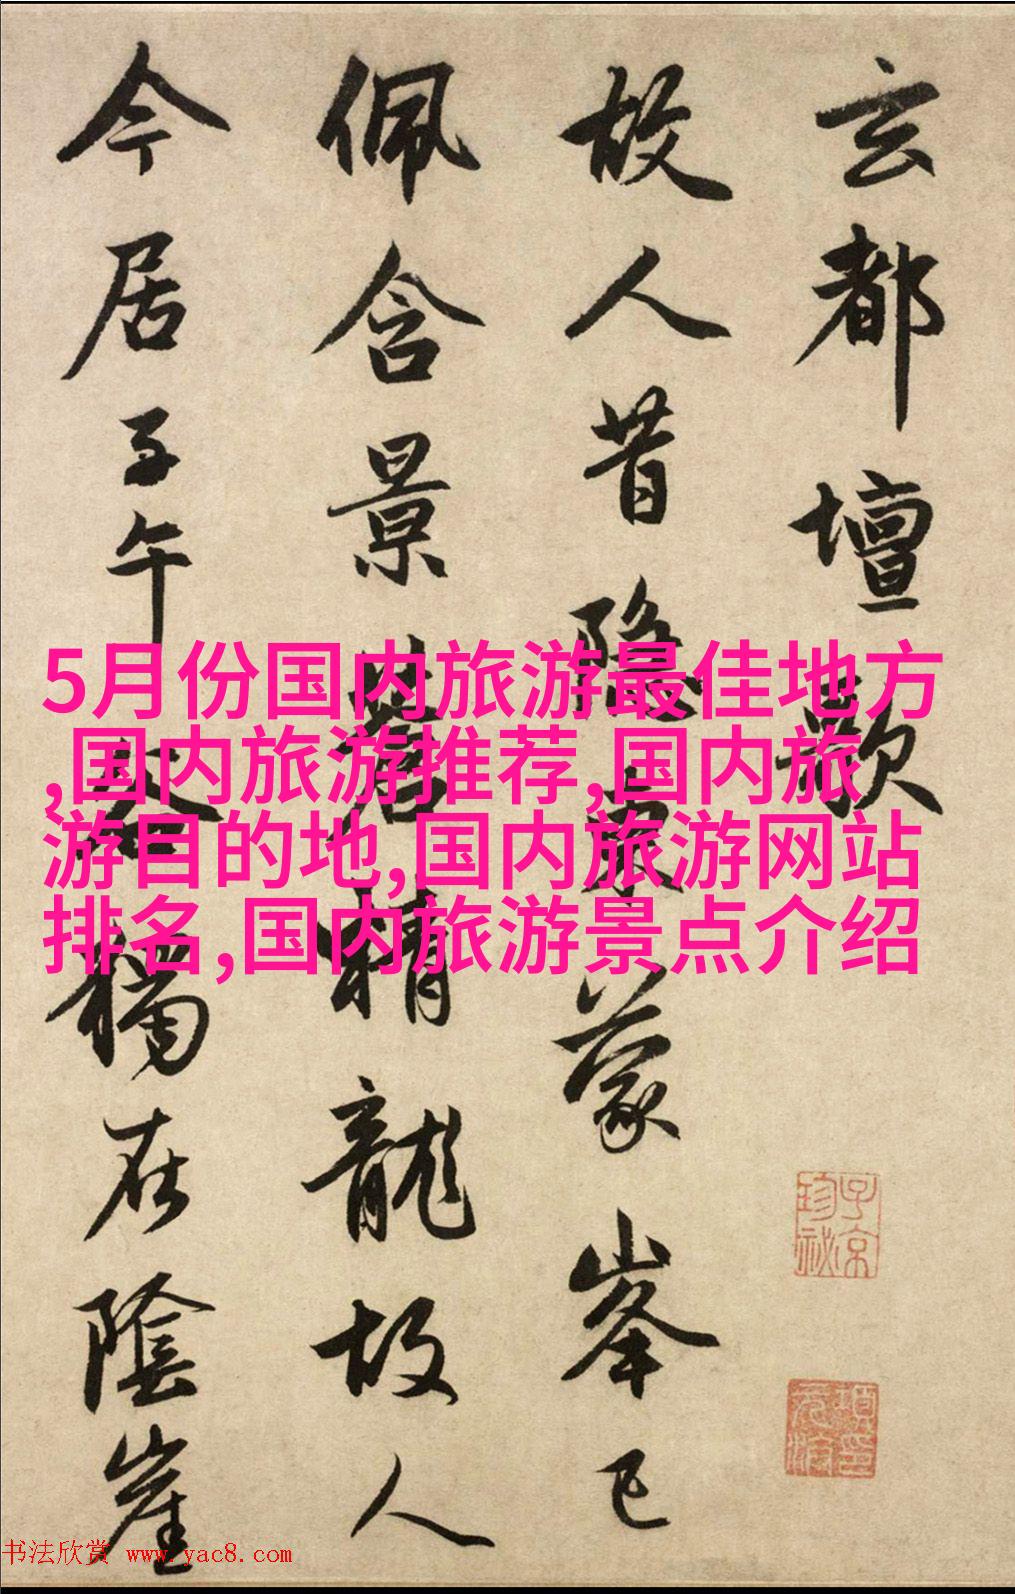 玄都壇歌
故人昔隱東蒙峯已
佩含景蒼精龍故人
今居子午谷獨在陰崖
5月份国内旅游最佳地方
,国内旅游推荐,国内旅
游目的地,国内旅游网站
排名,国内旅游景点介绍
子京
珍祕
项元汴印
书法欣赏 www.yac8.com